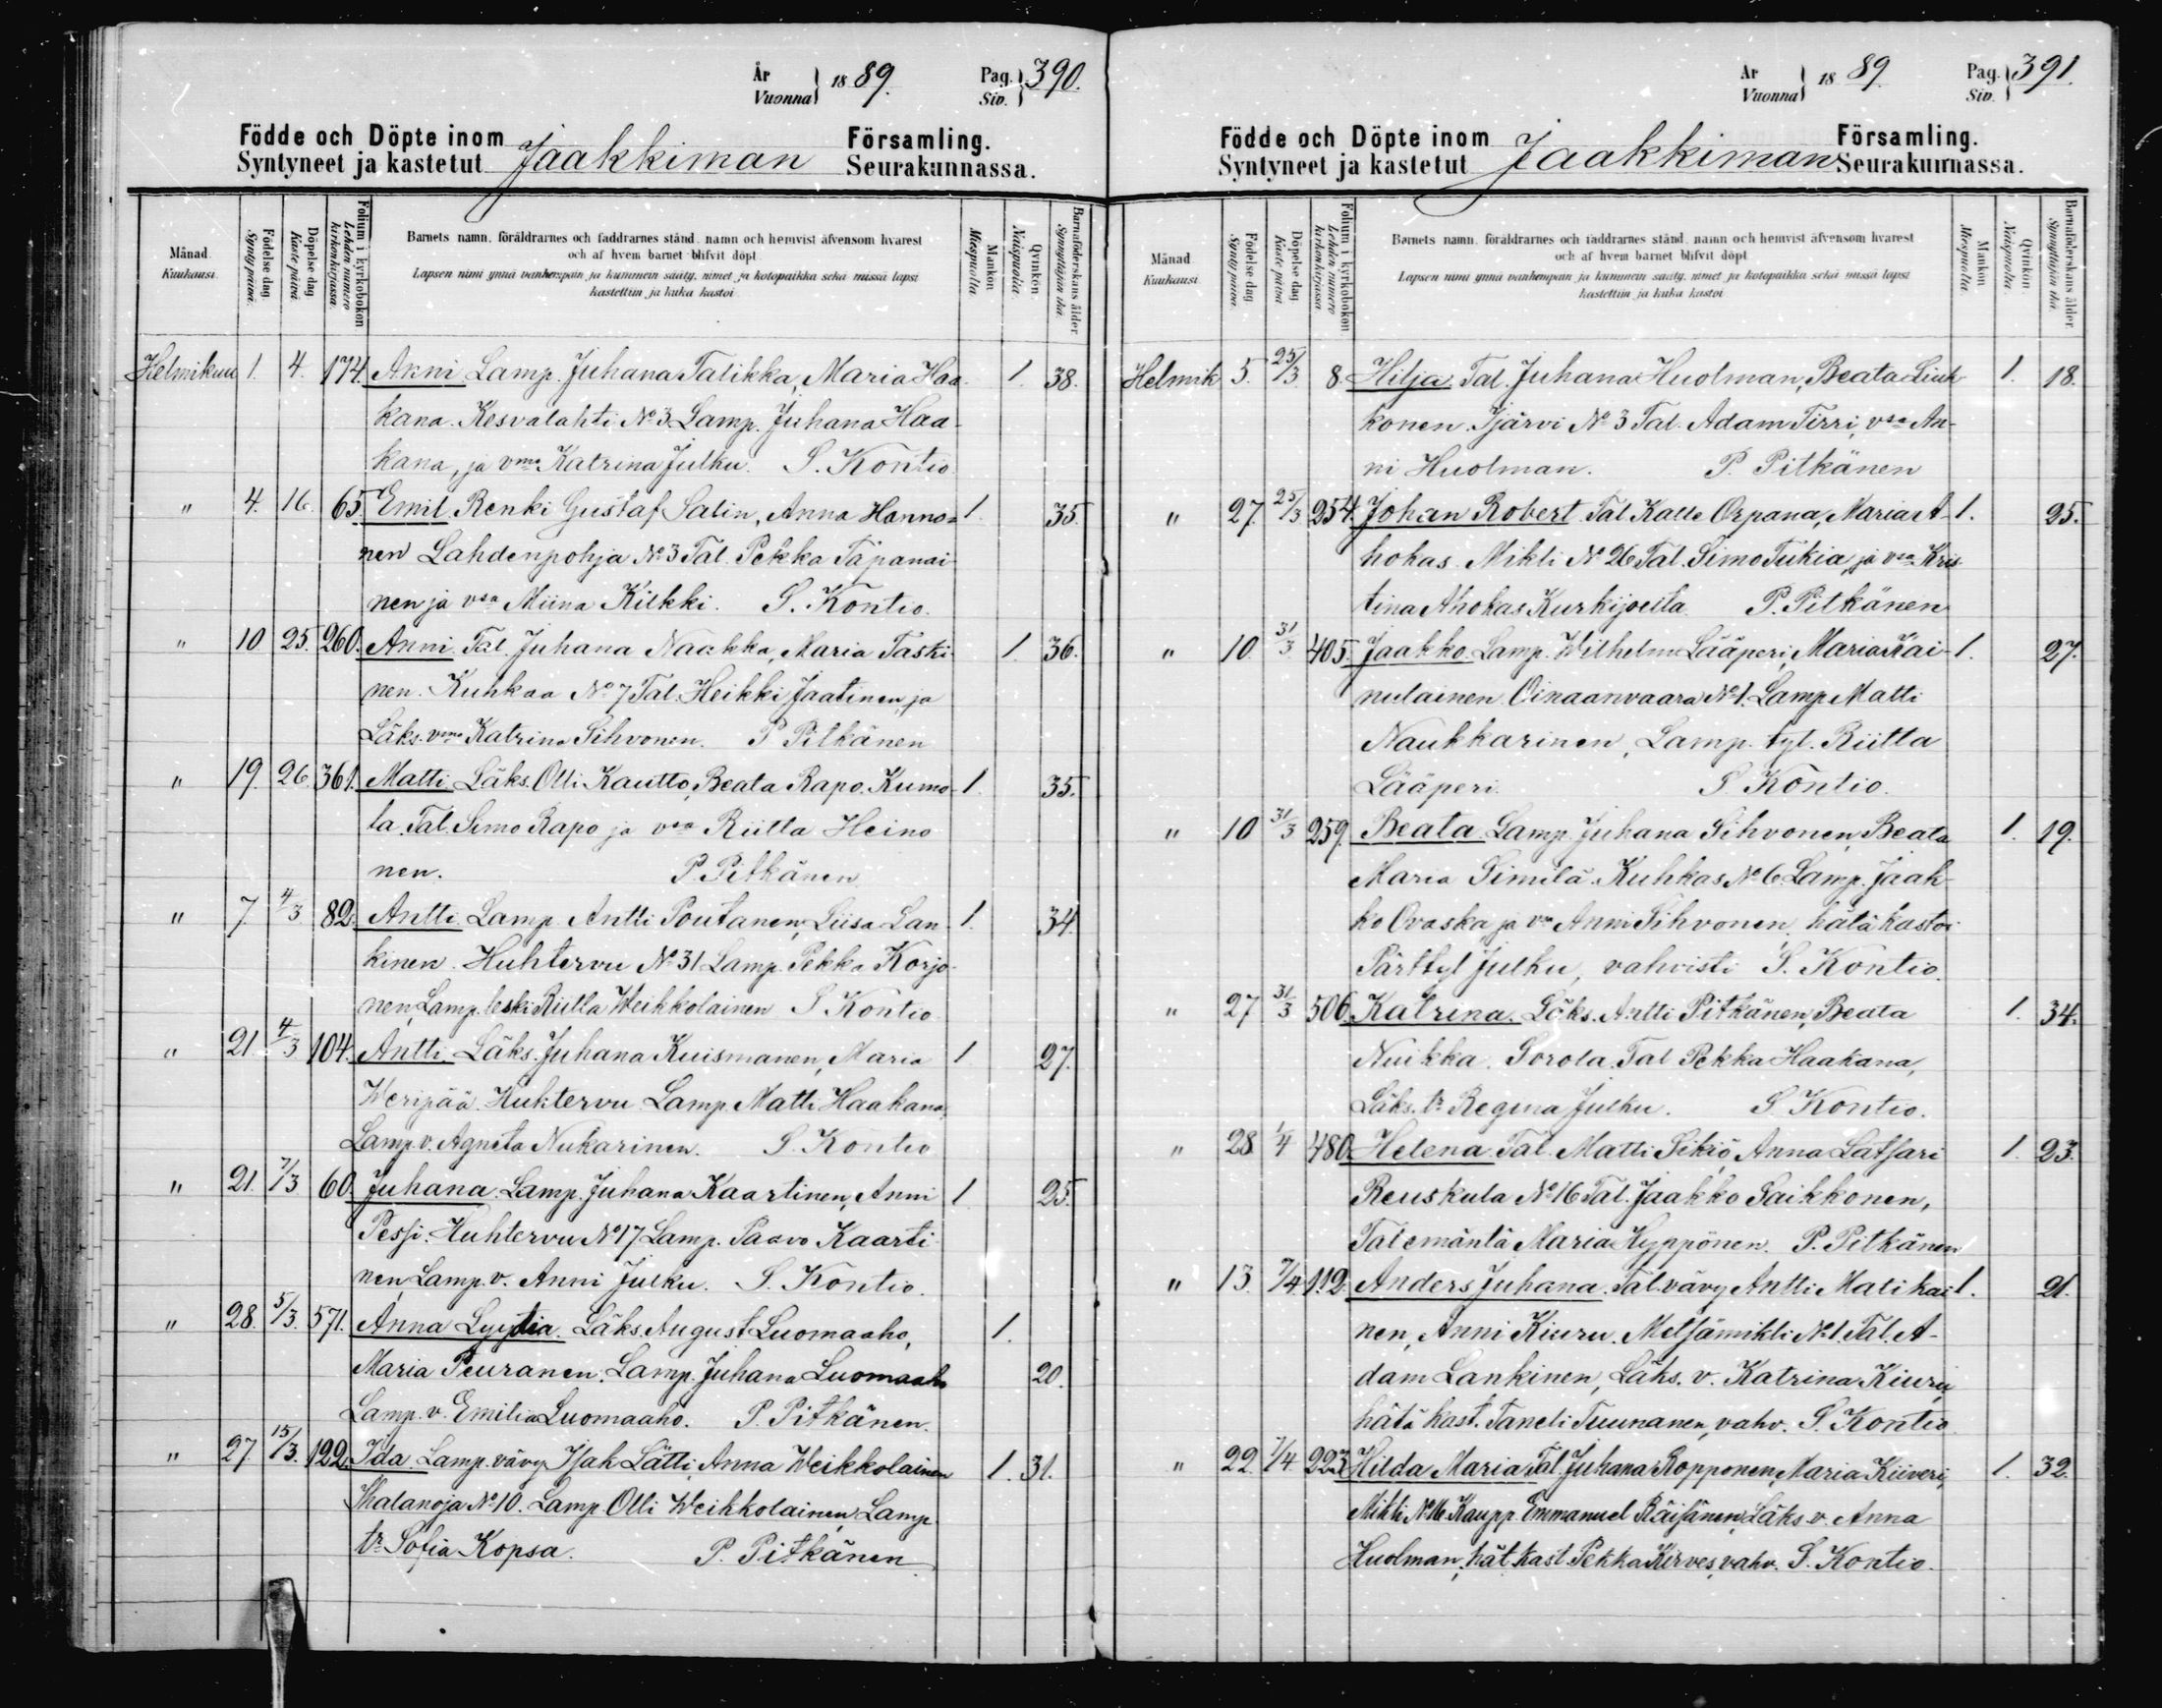 År
Vuonna } 1889. Pag.
Siv. } 390.
Födde och Döpte inom Jaakkiman Församling.
Syntyneet ja kastetut Seurakunnassa.
Månad. Kuukausi. Födelse dag. Synty päivä. Döpelse dag. Kaste päivä. Folium i kyrkoboken. Lehden numero kirkonkirjassa. Mankön Miespuolia. Qvinkön Naispuolia. Barnaföderskans ålder. Synnyttäjän ikä.
Barnets namn, föräldrarnes och faddrarnes stånd, namn och hemvist äfvensom hvarest
och af hvem barnet blifvit döpt.
Lapsen nimi ynnä vanhempain ja kummein sääty, nimet ja kotopaikka sekä missä lapsi
kastettiin ja kuka kastoi.
Helmikuu 1. 4. 174. Anni Lamp. Juhana Talikka, Maria Haa- 1. 38.
kana. Kesvalahti No 3 Lamp. Juhana Haa-
kana, ja vmo Katrina Julku. S. Kontio.
" 4. 16. 65. Emil. Renki Gustaf Salin, Anna Hanno= 1. 35.
nen Lahdenpohja No 3 Tal. Pekka Tapanai
nen ja vsa Miina Kilkki. S. Kontio.
" 10 25. 260. Anni. Tal. Juhana Naakka, Maria Taski- 1. 36.
nen. Kuhkaa No 7 Tal. Heikki Jaatinen, ja
Läks. vmo Katrina Sihvonen. P Pitkänen
" 19. 26. 361. Matti Läks. Olli Kautto, Beata Rapo. Kumo- 1. 35.
la. Tal. Simo Rapo ja vsa Riitta Heino
nen. P. Pitkänen
" 7. 4/3 82. Antti. Lamp Antti Poutanen, Liisa Lan- 1. 34.
kinen. Huhtervu No 31 Lamp. Pekka Korjo-
nen, Lamp. leski Riitta Weikkolainen S Kontio
" 21. 4/3 104. Antti. Läks. Juhana Kuismanen, Maria 1 27.
Weripää. Huhtervu Lamp. Matti Haakana,
Lamp. v. Agneta Nukarinen. S. Kontio
" 21. 7/3 60. Juhana. Lamp. Juhana Kaartinen, Anni 1 25.
Pessi. Huhtervu No 17 Lamp. Paavo Kaarti
nen, Lamp. v. Anni Julku. S. Kontio.
" 28. 5/3. 571. Anna Lyydia. Läks. August Luomaaho, 1.
Maria Peuranen. Lamp. Juhana Luomaaho 20.
Lamp. v. Emilia Luomaaho. P. Pitkänen.
" 27. 15/3. 122. Ida. Lamp. vävy Isak Lätti, Anna Weikkolainen 1. 31.
Ihalanoja No 10. Lamp. Olli Weikkolainen, Lamp.
tr Sofia Kopsa. P. Pitkänen
År
Vuonna } 1889. Pag.
Siv. } 391.
Födde och Döpte inom Jaakkiman Församling.
Syntyneet ja kastetut Seurakunnassa.
Månad. Kuukausi. Födelse dag. Synty päivä. Döpelse dag. Kaste päivä. Folium i kyrkoboken. Lehden numero kirkonkirjassa. Mankön Miespuolia. Qvinkön Naispuolia. Barnaföderskans ålder. Synnyttäjän ikä.
Barnets namn, föräldrarnes och faddrarnes stånd, namn och hemvist äfvensom hvarest
och af hvem barnet blifvit döpt.
Lapsen nimi ynnä vanhempain ja kummein sääty, nimet ja kotopaikka sekä missä lapsi
kastettiin ja kuka kastoi.
Helmik 5. 25/3 8. Hilja. Tal. Juhana Huolman, Beata Liuk- 1. 18.
konen. Ijärvi No 3 Tal. Adam Tirri, vsa An-
ni Huolman. P. Pitkänen
" 27. 25/3 254. Johan Robert. Tal. Kalle Orpana, Maria A- 1. 25.
hokas. Mikli No 26 Tal. Simo Tukia, ja vsa Kris-
tina Ahokas Kurkijoelta. P. Pitkänen
" 10. 31/3 405. Jaakko. Lamp. Wilhelm Lääperi, Maria Kai- 1. 27.
nulainen. Oinaanvaara No 1. Lamp. Matti
Naukkarinen, Lamp. tyt. Riitta
Lääperi. S. Kontio.
" 10 31/3 259. Beata. Lamp. Juhana Sihvonen, Beata 1. 19.
Maria Simila. Kuhkaa No 6. Lamp. Jaak-
ko Ovaska, ja vmo Anni Sihvonen, hätä kastoi
Pärttyl Julku, vahvisti S. Kontio.
" 27 31/3 506. Katrina. Läks. Antti Pitkänen, Beata 1. 34.
Nuikka. Sorola. Tal Pekka Haakana,
Läks. tr Regina Julku. S Kontio.
" 28 1/4 480. Helena. Tal. Matti Sikiö, Anna Latsari 1. 23.
Reuskula No 16 Tal. Jaakko Saikkonen,
Tal emäntä Maria Hyppönen. P. Pitkänen
" 13. 7/4 112. Anders Juhana. Tal. vävy Antti Matikai- 1. 21.
nen, Anni Kiuru. Metsämikli No 1. Tal. A-
dam Lankinen, Läks. v. Katrina Kiuru,
hätä kast. Taneli Tuunanen, vahv. S. Kontio
" 22. 7/4 223 Hilda Maria Tal. Juhana Ropponen, Maria Kiiveri, 1. 32.
Mikli No 16 Kaupp. Emmanuel Räisänen, Läks. v. Anna
Huolman, hät. kast. Pekka Kirves, vahv. S. Kontio.